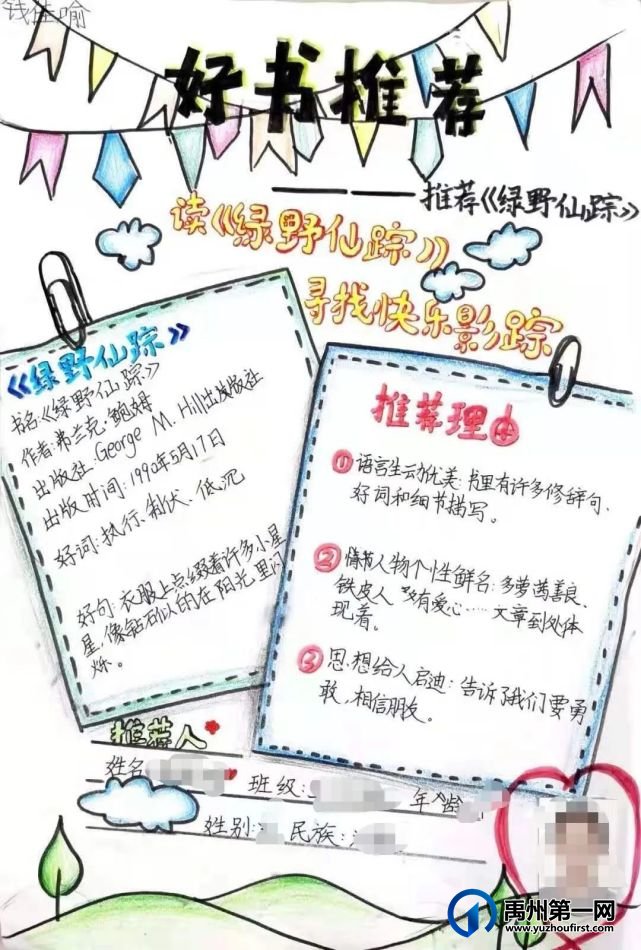 钱佳喻
好书推荐
——推荐《绿野仙踪》
读《绿野仙踪》
寻找快乐影踪
《绿野仙踪》
书名:《绿野仙踪》
作者:弗兰克·鲍姆
出版社:George M. Hill出版社
出版时间:1990年5月17日
好词:执行、制伏、低沉
好句:衣服上点缀着许多小星
星,像钻石似的在阳光里闪
烁。
推荐理由
① 语言生动优美:书里有许多修辞句、
好词和细节描写。
② 情节人物个性鲜名:多萝茜善良、
铁皮人 有爱心……文章到处体
现着。
③ 思想给人启迪:告诉了我们要勇
敢,相信朋友。
推荐人
姓名 班级: 年龄:
性别: 民族:
禹州第一网
www.yuzhoufirst.com